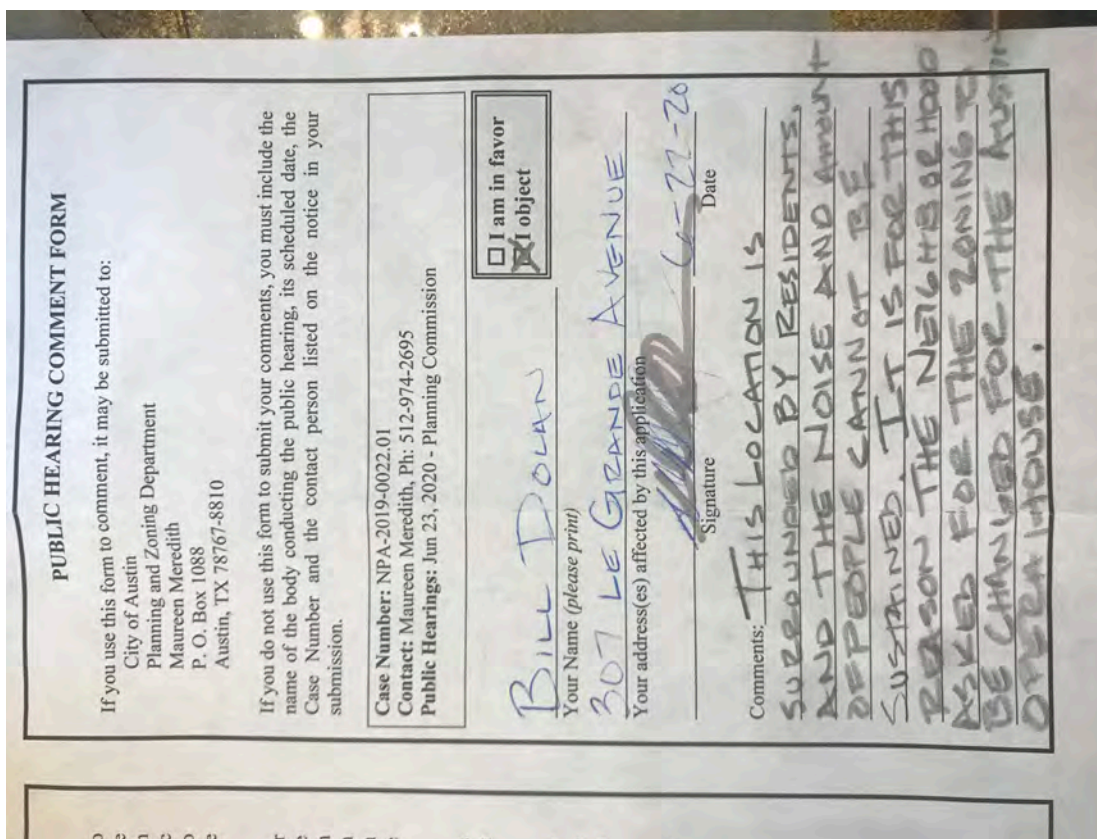 PUBLIC HEARING COMMENT FORM
If you use this form to comment, it may be submitted to:
City of Austin
Planning and Zoning Department
Maureen Meredith
P. O. Box 1088
Austin, TX 78767-8810
If you do not use this form to submit your comments, you must include the
name of the body conducting the public hearing, its scheduled date, the
Case Number and the contact person listed on the notice in your
submission.
Case Number: NPA-2019-0022.01
Contact: Maureen Meredith, Ph: 512-974-2695
Public Hearings: Jun 23, 2020 - Planning Commission
☐ I am in favor
☒ I object
BILL DOLAN
Your Name (please print)
307 LE GRANDE AVENUE
Your address(es) affected by this application
6-22-20
Signature Date
Comments: THIS LOCATION IS
SURROUNDED BY RESIDENTS,
AND THE NOISE AND AMOUNT
OF PEOPLE CANNOT BE
SUSTAINED. IT IS FOR THIS
REASON THE NEIGHBORHOOD
ASKED FOR THE ZONING TO
BE CHANGED FOR THE AUSTIN
OPERA HOUSE.